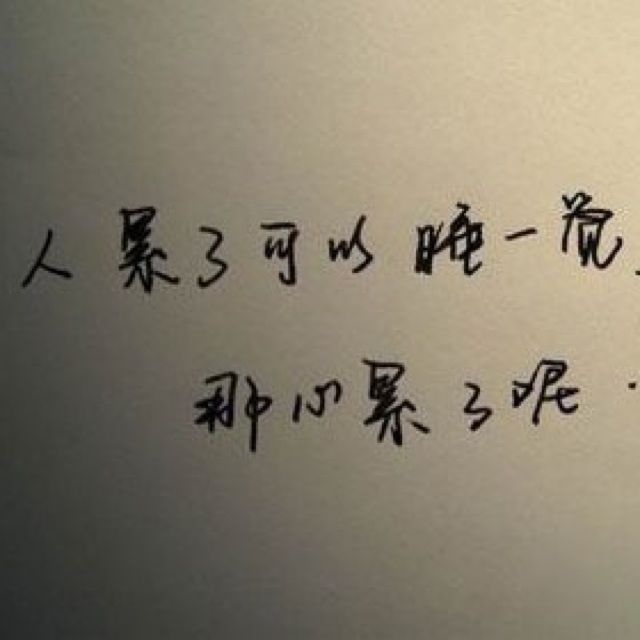 人累了可以睡一觉.
那心累了呢·